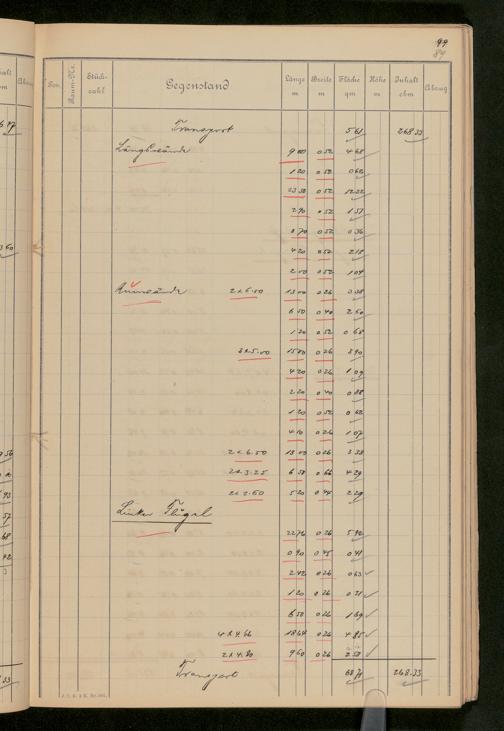 99
89
Pos. Raum-Nr. Stück-zahl Gegenstand Länge m Breite m Fläche qm Höhe m Inhalt cbm Abzug
Transport 5 61 268.33
Längswände 9 00 0 52 4 68
1 20 0 52 0 62
0 52 12 22
2 90 0 52 1 51
0 70 0 52 0 36
4 20 0 52 2 18
2 00 0 52 1 04
2 x 6.50 13 00 0 26 3 38
6 50 0 40 2 60
1 30 0 52 0 68
3 x 5.00 15 00 0 26 3 90
4 20 0 26 1 09
2 20 0 40 0 88
1 20 0 52 0 62
4 10 0 26 1 07
2 x 6.50 13 00 0 26 3 38
2 x 3.25 6 50 0 66 4 29
2 x 2.60 5 20 0 44 2 29
Linker Flügel
22 76 0 26 5 92
0 90 0 45 0 41
2 42 0 26 0 63
1 20 0 26 0 31
6 50 0 26 1 69
4 x 4.66 18 64 0 26 4 85
2 x 4.80 9 60 0 26 2 50
Transport 268.33